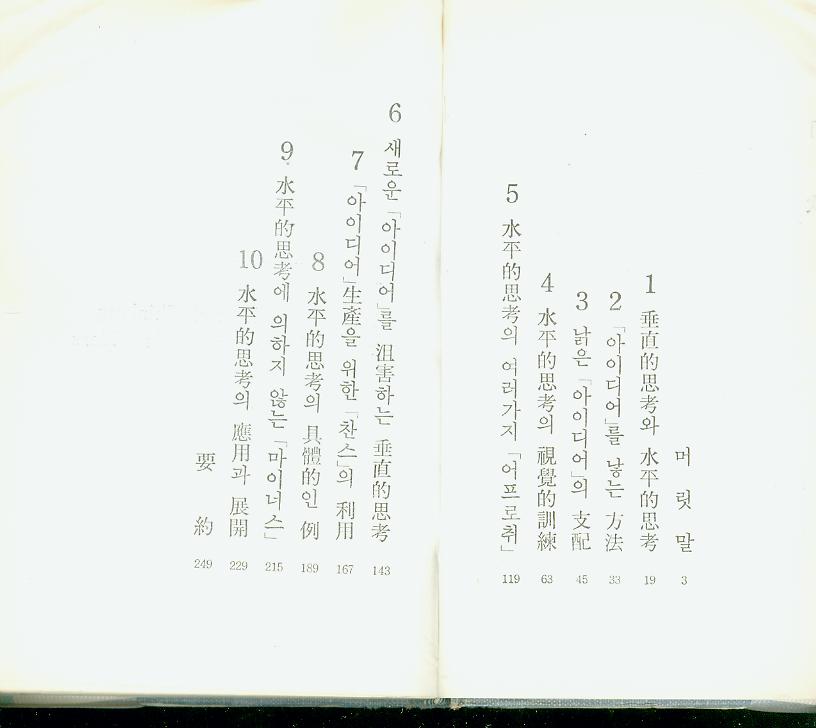 머릿말 3
1 垂直的思考와 水平的思考 19
2 「아이디어」를 낳는 方法 33
3 낡은 「아이디어」의 支配 45
4 水平的思考의 視覺的訓練 63
5 水平的思考의 여러가지 「어프로취」 119
6 새로운 「아이디어」를 沮害하는 垂直的思考 143
7 「아이디어」生產을 위한 「찬스」의 利用 167
8 水平的思考의 具體的인 例 189
9. 水平的思考에 의하지 않는 「마이너스」 215
10 水平的思考의 應用과 展開 229
要約 249